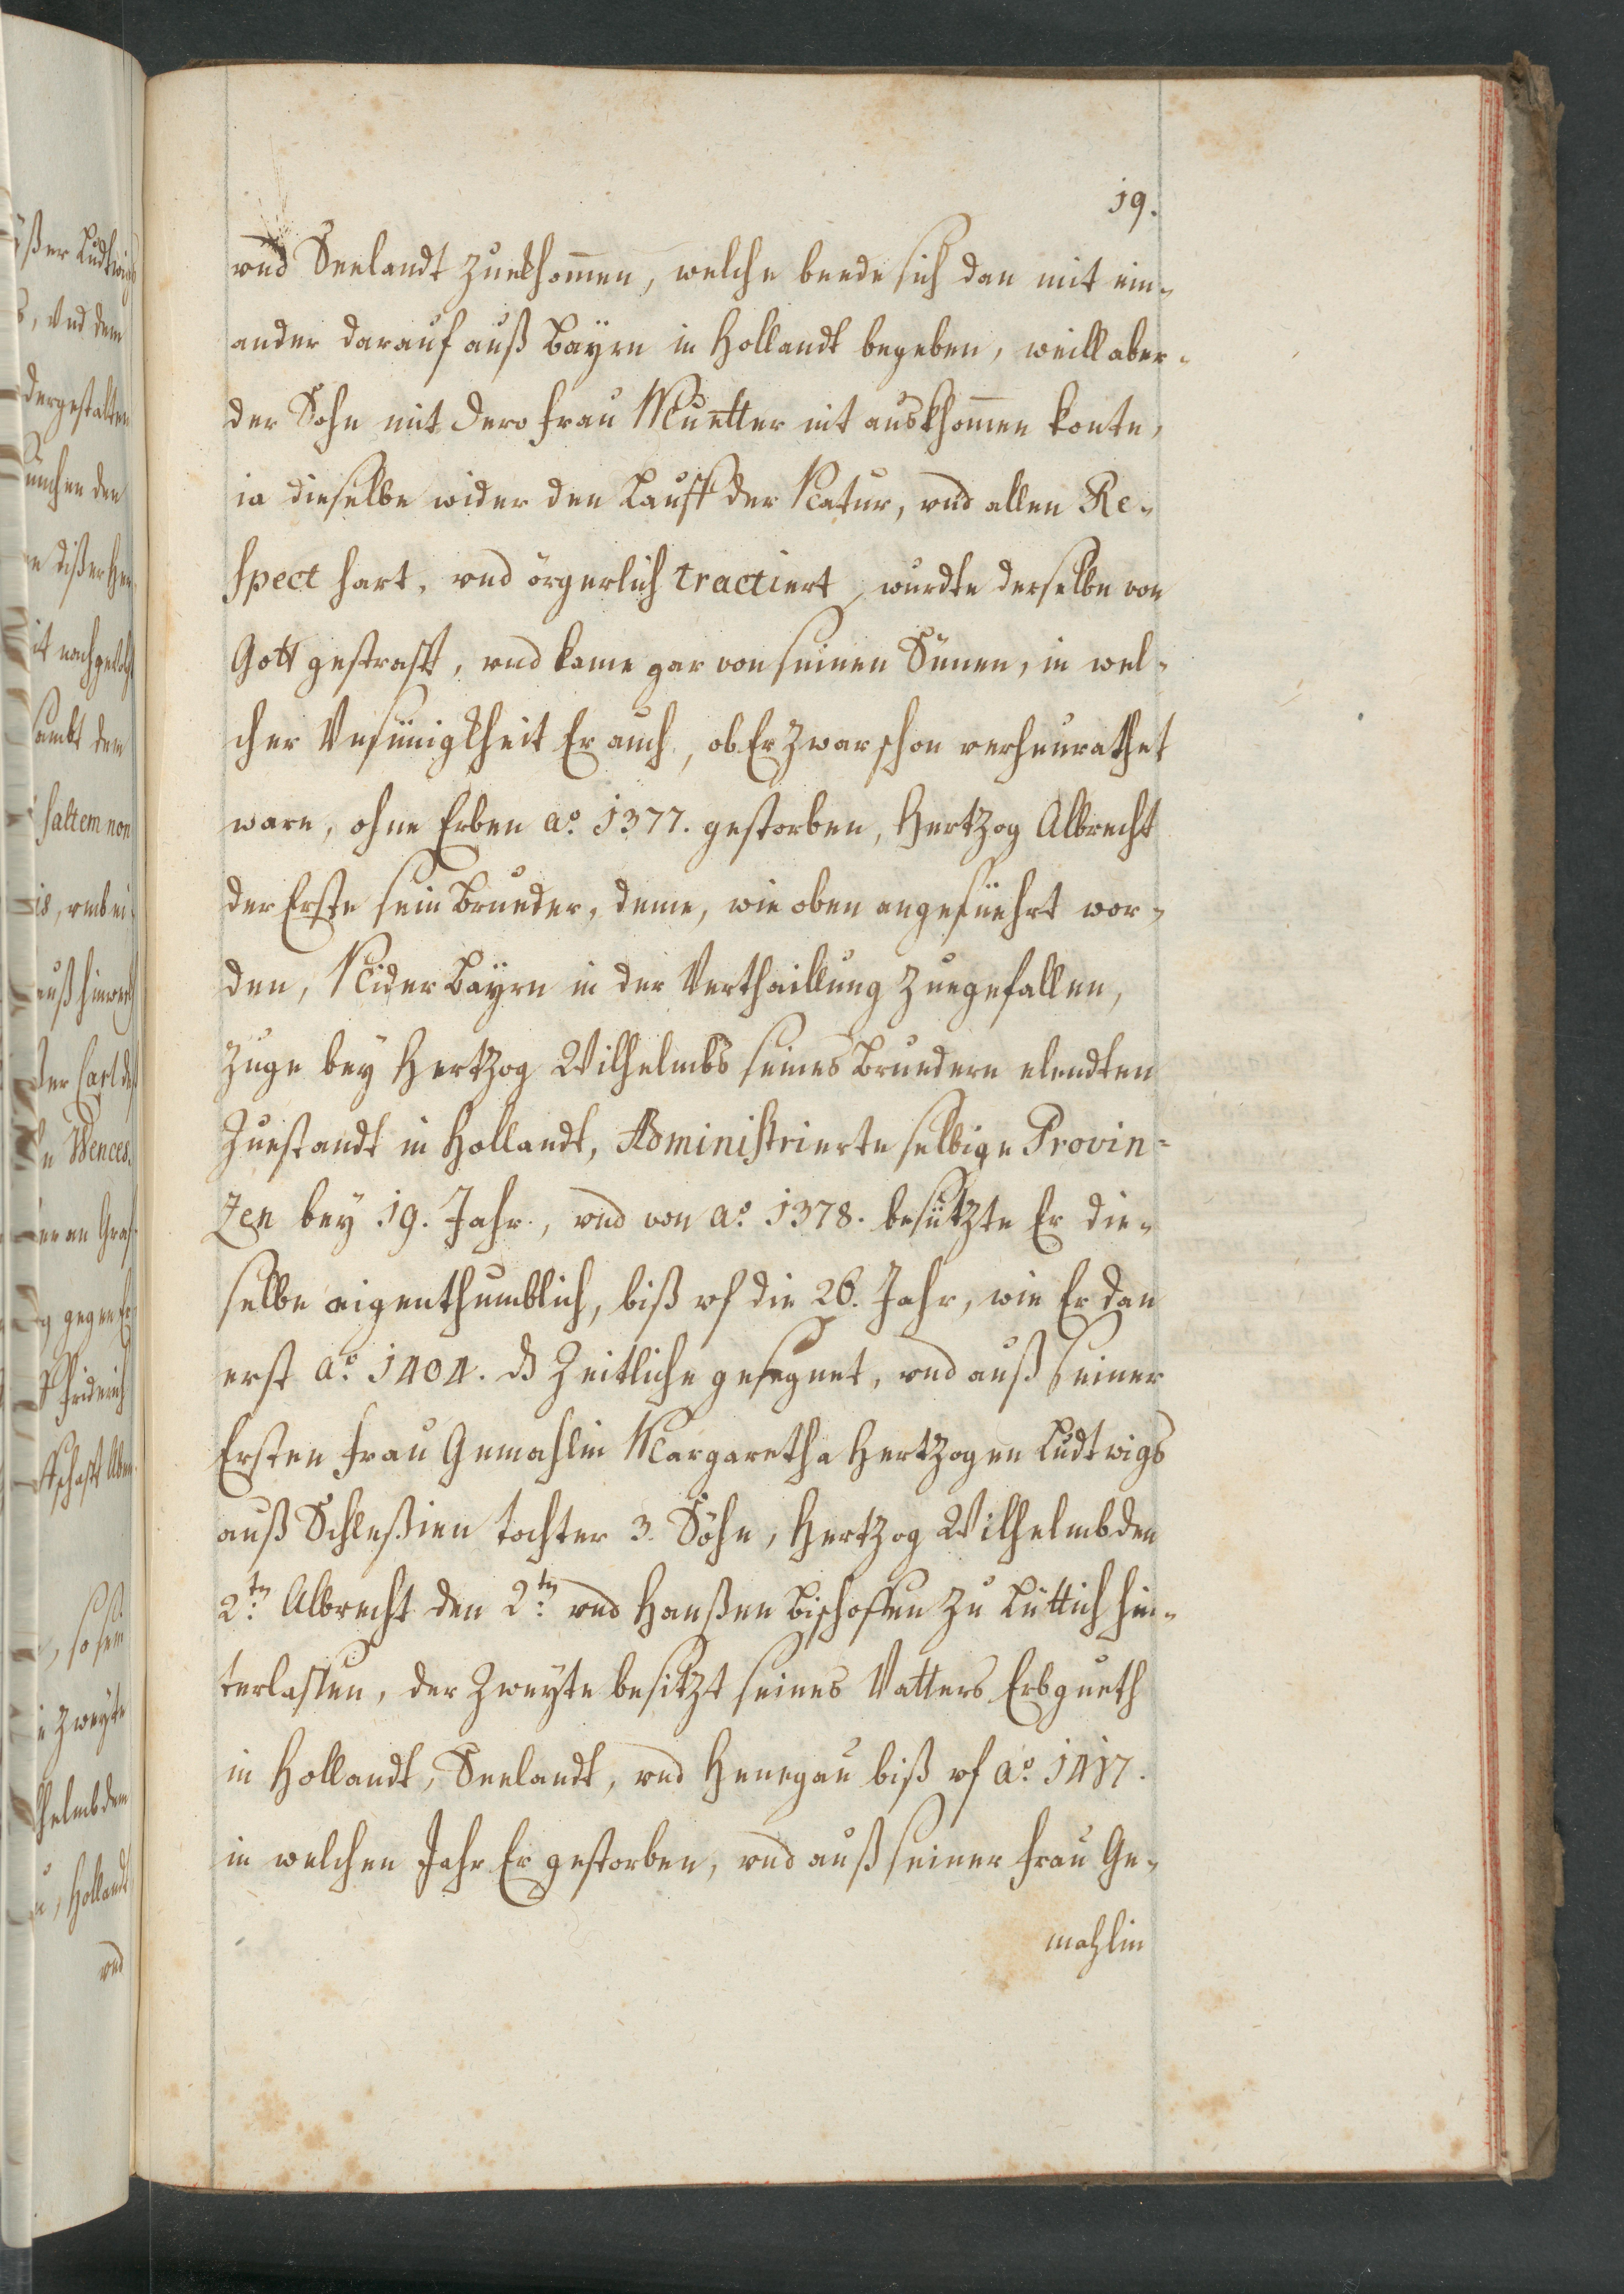 19.
vnd Seelandt zuekhom̄en, welche beede sich dan mit ein-
ander darauf auß Bayrn in Hollandt begeben, weill aber
der Sohn mit dero Frau Muetter nit auskhom̄en konte,
ia dieselbe wider den Lauff der Natur, vnd allen Re-
spect hart, vnd örgerlich tractiert, wurdte derselbe von
Gott gestrafft, vnd kame gar von seinen Sünen, in wel-
cher Vnsünigkheit Er auch, ob Er zwar schon verheurathet
ware, ohne Erben a.o 1377. gestorben, Hertzog Albrecht
der Erste sein Brueder, deme, wie oben angefüehrt wor-
den, Nider Bayrn in der Verthaillung zuegefallen,
zuge bey Hertzog Wilhelmbs seines Bruedern elendten
Zuestandt in Hollandt, Administrierte selbige Provin-
zen bey 19. Jahr, vnd von a.o 1378. besützte Er die-
selbe aigenthumblich, biß vf die 26. Jahr, wie Er dan
erst a.o 1404. dß Zeitliche gesegnet, vnd auß seiner
Ersten Frau Gemahlin Margaretha Hertzogen Ludtwigs
auß Schleßien tochter 3. Söhn, Hertzog Wilhelmb den
2.tn Albrecht den 2.tn vnd Hanßen Bischoffen zu Lüttich hin-
terlassen, der Zweyte besitzt seines Vatters Erbgueth
in Hollandt, Seelandt, vnd Henegau biß vf a.o 1417.
in welchen Jahr Er gestorben, vnd auß seiner Frau Ge-
mahlin